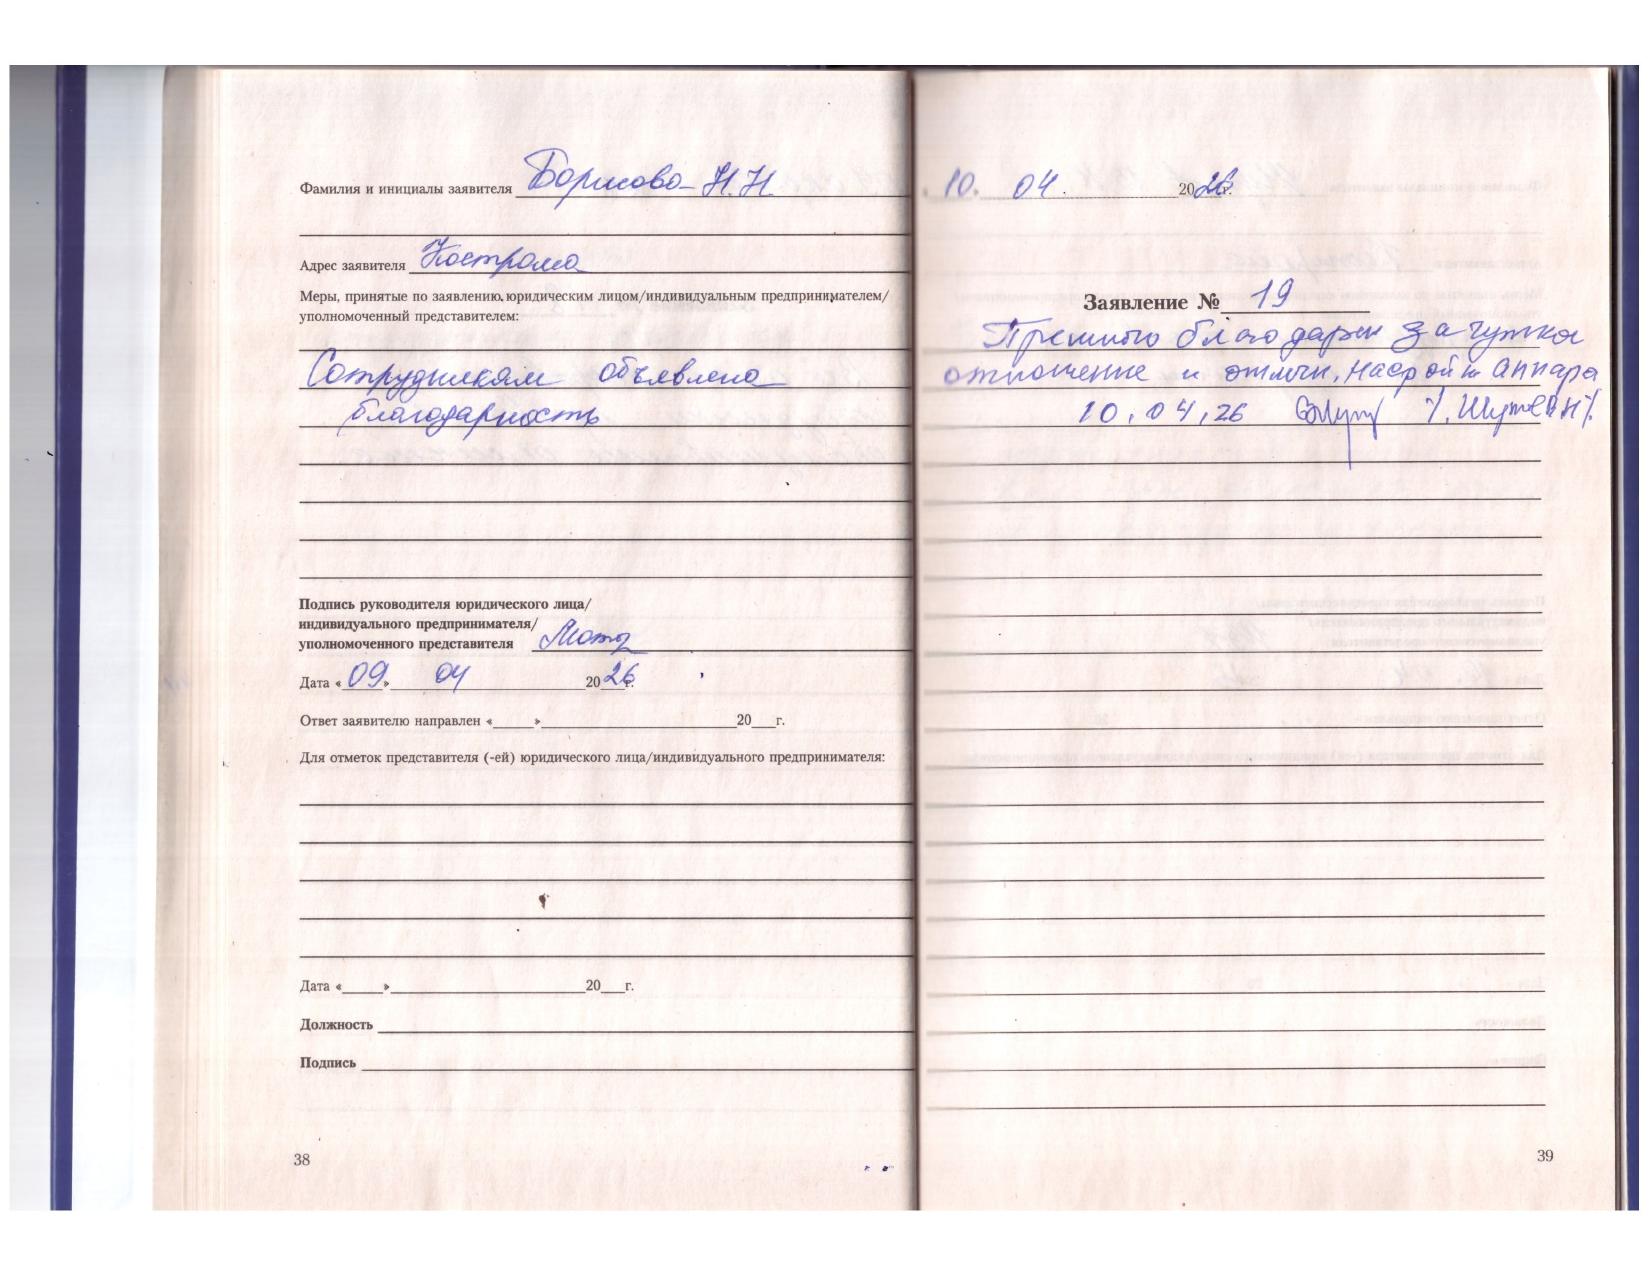 Фамилия и инициалы заявителя Борисова Н.Н.
Адрес заявителя Кострома
Меры, принятые по заявлению, юридическим лицом/индивидуальным предпринимателем/
уполномоченный представителем:
Сотрудникам объявлена
благодарность
Подпись руководителя юридического лица/
индивидуального предпринимателя/
уполномоченного представителя
Дата «09» 04 2026г.
Ответ заявителю направлен «____»____ 20__г.
Для отметок представителя (-ей) юридического лица/индивидуального предпринимателя:
Дата «____»____ 20__г.
Должность
Подпись
38
10. 04. 2026г.
Заявление № 19
благодарен за чуткое
отношение и отличн. настройк аппара
10.04.26
39